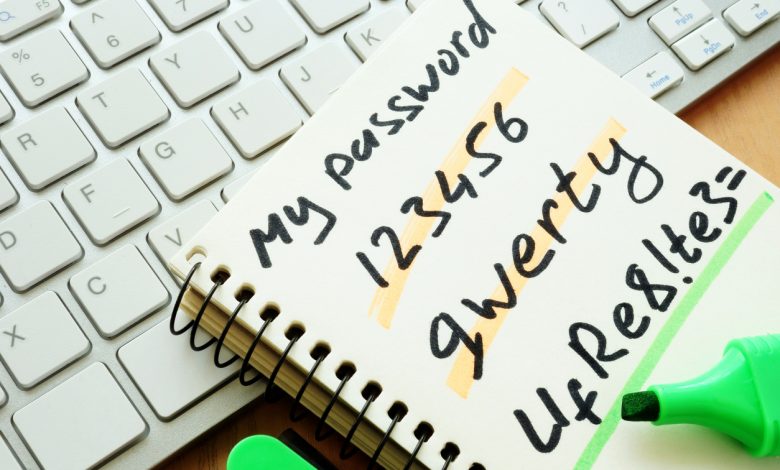 My password
123456
qwerty
UfRe8!te3=
F5
&
7
^
6
*
8
%
5
U
Y
T
R
K
J
H
G
F
D
V
C
X
PgUp
PgDn
Home